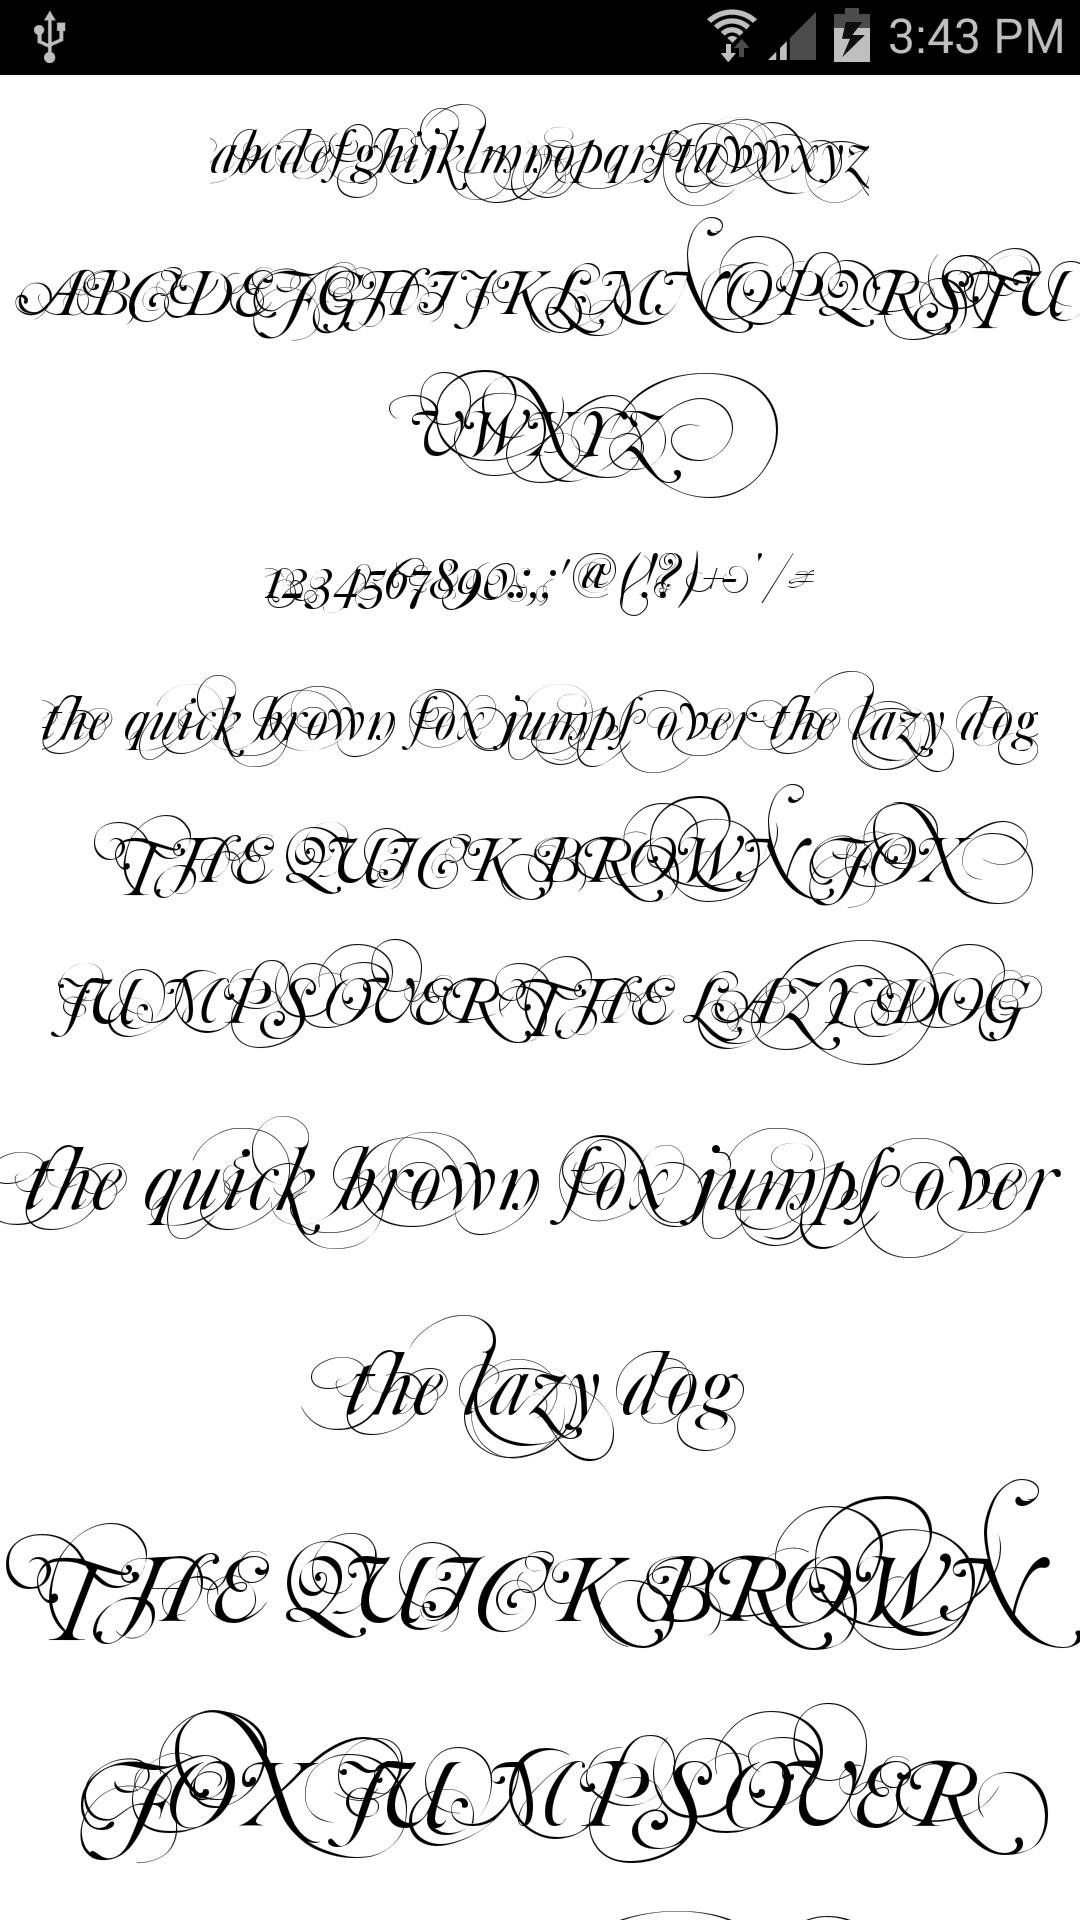 3:43 PM
abcdefghijklmnopqrstuvwxyz
ABCDEFGHIJKLMNOPQRSTU
VWXYZ
1234567890.:,;'@(!?)+-'/=
the quick brown fox jumps over the lazy dog
THE QUICK BROWN FOX
JUMPS OVER THE LAZY DOG
the quick brown fox jumps over
the lazy dog
THE QUICK BROWN
FOX JUMPS OVER